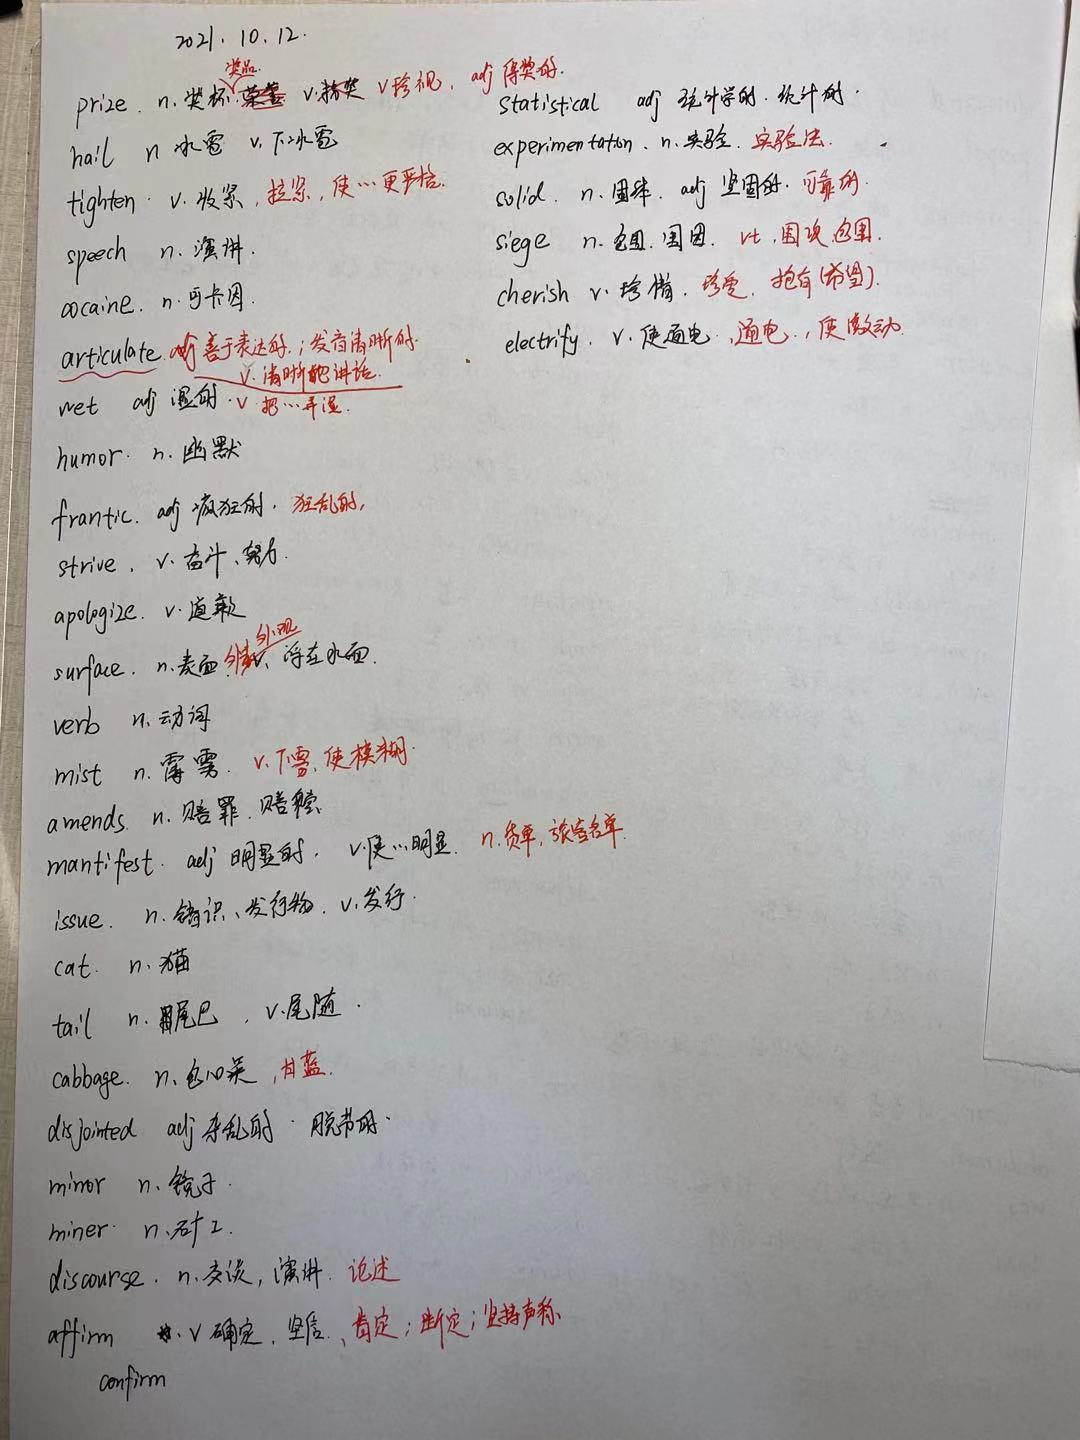 2021.10.12.
prize. n.奖杯.奖品 v.珍视. adj 得奖的.
hail n 冰雹 v.下冰雹
tighten. v.收紧,拉紧,使…更严格.
speech n.演讲.
cocaine. n.可卡因.
articulate. adj 善于表达的.;发音清晰的.
v.清晰地讲话.
wet adj 湿的.v 把…弄湿.
humor. n.幽默
frantic. adj 疯狂的.狂乱的,
strive. v.奋斗、努力.
apologize. v.道歉
外观
surface. n.表面. v. 浮在水面.
verb n.动词
mist n. v.下雾,使模糊.
amends. n.赔罪.赔偿
mantifest. adj 明显的. v.使…明显. n.货单,旅客名单.
issue. n. 发行物. v.发行.
cat. n.猫
tail n.尾巴. v.尾随.
cabbage. n.包心菜,甘蓝.
disjointed adj 杂乱的.脱节的.
mirror n.镜子.
miner. n.矿工.
discourse. n.交谈,演讲.论述
affirm v 确定.坚信.、肯定;断定;坚持声称.
confirm
statistical adj 统计学的.统计的.
experimentation. n.实验.实验法.
solid. n.固体. adj 坚固的.可靠的.
siege n.包围.围困. vt.围攻,包围.
cherish v.珍惜.珍爱. 抱有(希望).
electrify. v.使通电.通电.,使激动.